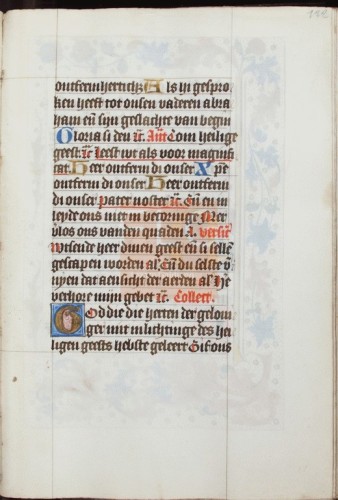 ontfermherticheit Als hi gespro
ken heeft tot onsen vaderen abra
ham en̄ sijn geslachte van begin
Gloria si den ⁊c̄. Ant̄ Com heilige
geest. ⁊c̄ Leest wt als voor magnifi
cat. Heer ontferm di onser Xp̄e
ontferm di onser Heer ontferm
di onser Pater noster ⁊c̄. En̄ en in
leyde ons niet in becoringe Mer
vlos ons vanden quaden A. versic̄
Wtsende heer dinen geest en̄ si sellē
gescapen worden al. En̄ du selste v̄
nyen dat aensicht der aerden al He
verhore mijn gebet ⁊c̄. Collect.
God die die herten der gelovi
ger mit inluchtinge des hei
ligen geests hebste geleert Gif ons